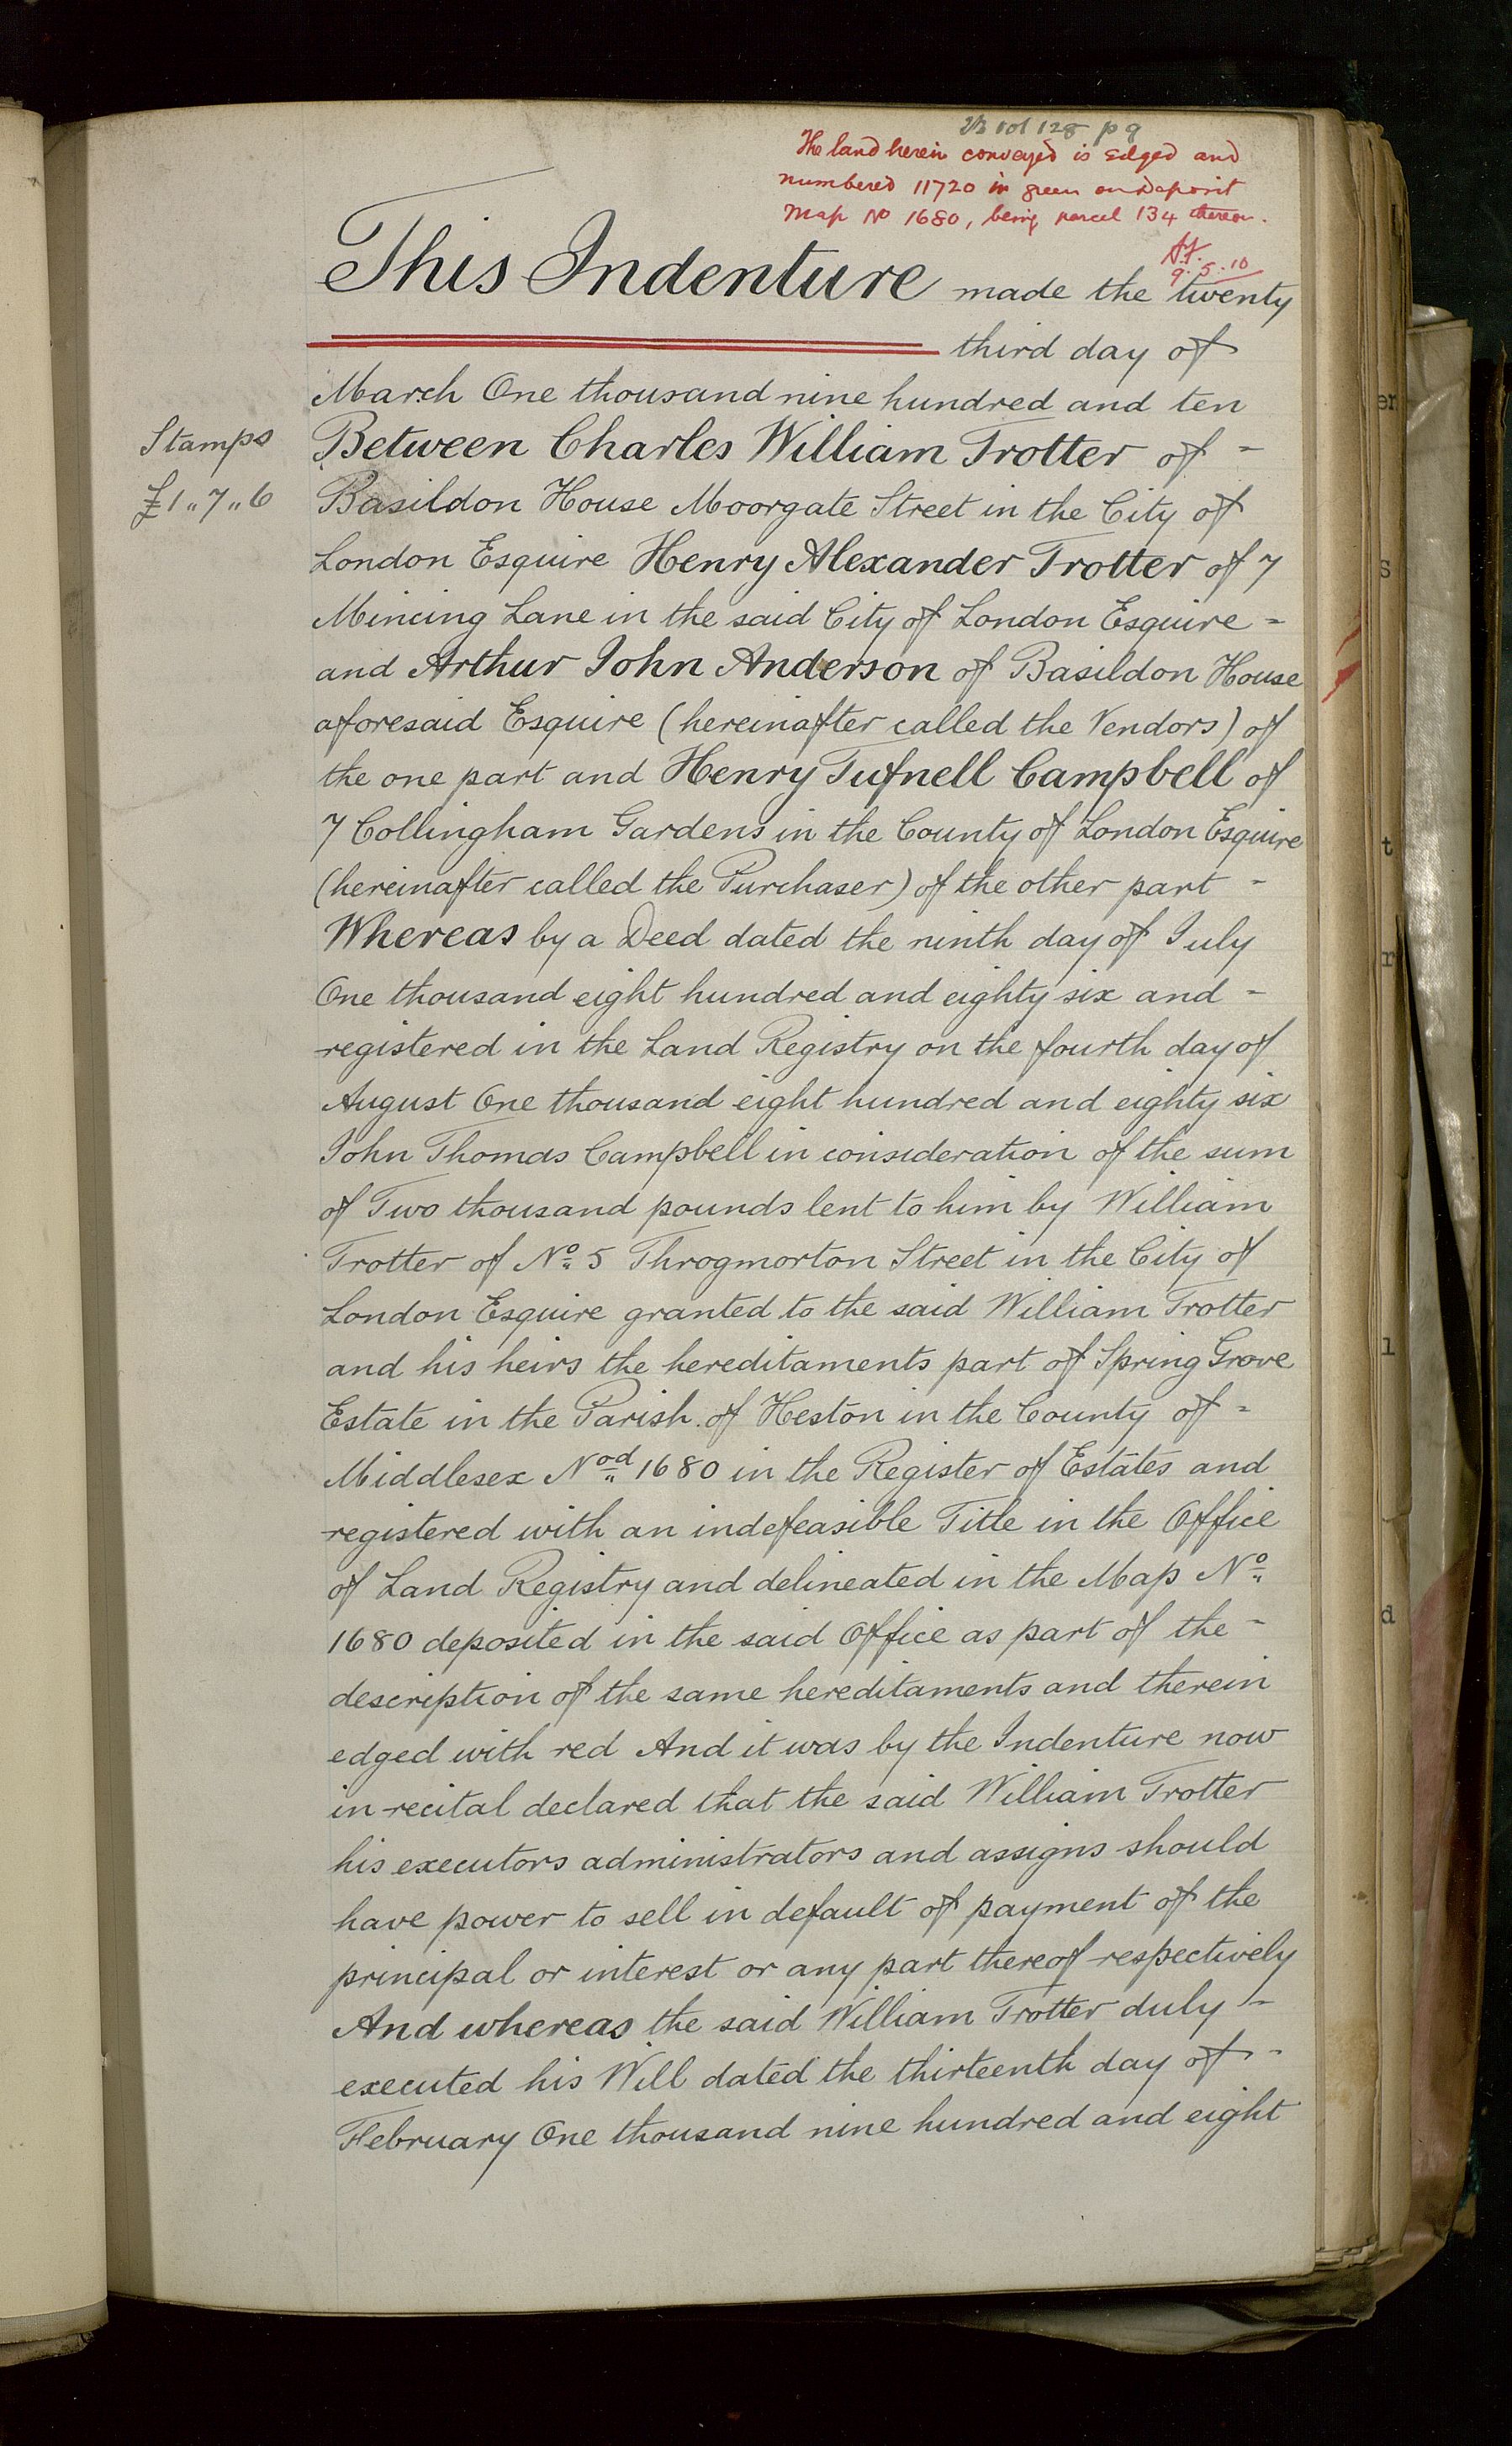 vol 128 p 9
The land herein conveyed is edged and
numbered 11720 in green on Deposit
Map No 1680, being parcel 134 thereon.
9.5.10
This Indenture made the twenty
third day of
March One thousand nine hundred and ten
Stamps
Between Charles William Trotter of -
£1„7„6
Basildon House Moorgate Street in the City of
London Esquire Henry Alexander Trotter of 7
Mincing Lane in the said City of London Esquire -
and Arthur John Anderson of Basildon House
aforesaid Esquire (hereinafter called the Vendors) of
the one part and Henry Tufnell Campbell of
7 Collingham Gardens in the County of London Esquire
(hereinafter called the Purchaser) of the other part -
Whereas by a Deed dated the ninth day of July
One thousand eight hundred and eighty six and -
registered in the Land Registry on the fourth day of
August One thousand eight hundred and eighty six
John Thomas Campbell in consideration of the sum
of Two thousand pounds lent to him by William
Trotter of No. 5 Throgmorton Street in the City of
London Esquire granted to the said William Trotter
and his heirs the hereditaments part of Spring Grove
Estate in the Parish of Heston in the County of -
Middlesex Nod 1680 in the Register of Estates and
registered with an indefeasible Title in the Office
of Land Registry and delineated in the Map No.
1680 deposited in the said Office as part of the -
description of the same hereditaments and therein
edged with red And it was by the Indenture now
in recital declared that the said William Trotter
his executors administrators and assigns should
have power to sell in default of payment of the
principal or interest or any part thereof respectively
And whereas the said William Trotter duly -
executed his Will dated the thirteenth day of -
February One thousand nine hundred and eight
er
s
t
r
l
d